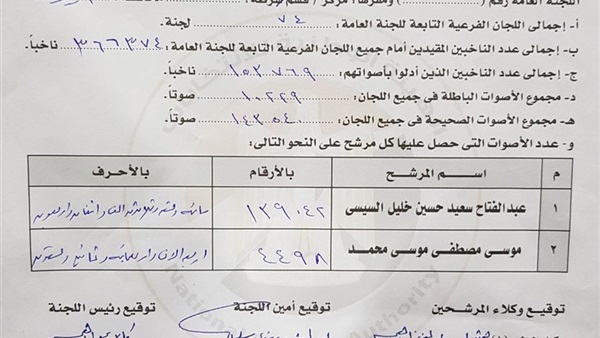 اللجنة العامة رقم ( ) ومقرها: مركز / قسم شرطة:
أ- إجمالى عدد اللجان الفرعية التابعة للجنة العامة: ٧٤ لجنة.
ب- إجمالى عدد الناخبين المقيدين أمام جميع اللجان الفرعية التابعة للجنة العامة: ٣٦٦٣٧٤ ناخباً.
ج- إجمالى عدد الناخبين الذين أدلوا بأصواتهم: ١٥٣٧٦٩ ناخباً.
د- مجموع الأصوات الباطلة فى جميع اللجان: ١٠٢٢٩ صوتاً.
هـ- مجموع الأصوات الصحيحة فى جميع اللجان: ١٤٣٥٤٠ صوتاً.
و - عدد الأصوات التى حصل عليها كل مرشح على النحو التالى:
م اســم المرشــح بالأرقام بالأحرف
١ عبدالفتاح سعيد حسين خليل السيسى ١٣٩٠٤٢ مائه وتسعه وثلاثون الف واثنان واربعون
٢ موسى مصطفى موسى محمد ٤٤٩٨ اربعه الاف واربعمائه وثمانيه وتسعون
توقيع وكلاء المرشحين توقيع أمين اللجنة توقيع رئيس اللجنة